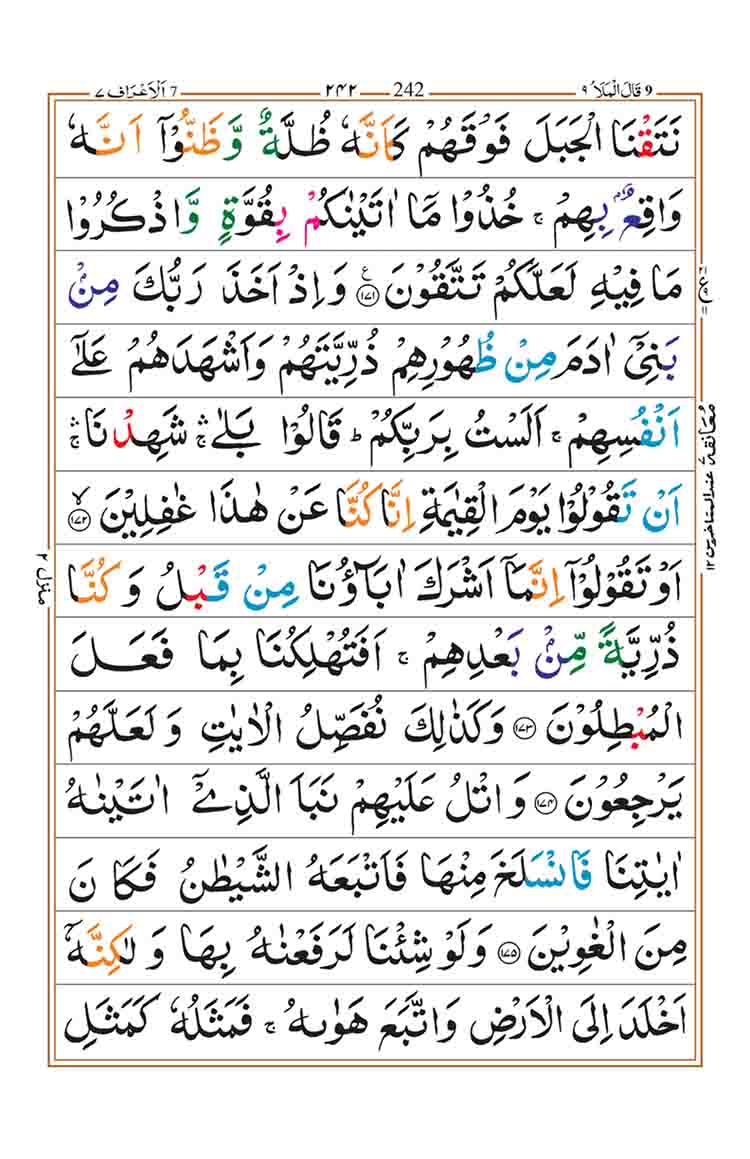 9 قَالَ الْمَلَاُ ٩ 242 ٢٤٢ 7 اَلْاَعْرَاف ٧
نَتَقْنَا الْجَبَلَ فَوْقَهُمْ كَاَنَّهٗ ظُلَّةٌ وَّظَنُّوْۤا اَنَّهٗ
وَاقِعٌۢ بِهِمْ ۚ خُذُوْا مَاۤ اٰتَیْنٰكُمْ بِقُوَّةٍ وَّاذْكُرُوْا
مَا فِیْهِ لَعَلَّكُمْ تَتَّقُوْنَ ۧ﴿۱۷۱﴾ وَاِذْ اَخَذَ رَبُّكَ مِنْۢ
بَنِیْۤ اٰدَمَ مِنْ ظُهُوْرِهِمْ ذُرِّیَّتَهُمْ وَاَشْهَدَهُمْ عَلٰۤی
اَنْفُسِهِمْ ۚ اَلَسْتُ بِرَبِّكُمْ ؕ قَالُوْا بَلٰی ۛۚ شَهِدْنَا ۛۚ
اَنْ تَقُوْلُوْا یَوْمَ الْقِیٰمَةِ اِنَّا كُنَّا عَنْ هٰذَا غٰفِلِیْنَ ۙ﴿۱۷۲﴾
اَوْ تَقُوْلُوْۤا اِنَّمَاۤ اَشْرَكَ اٰبَآؤُنَا مِنْ قَبْلُ وَ كُنَّا
ذُرِّیَّةً مِّنْۢ بَعْدِهِمْ ۚ اَفَتُهْلِكُنَا بِمَا فَعَلَ
الْمُبْطِلُوْنَ ﴿۱۷۳﴾ وَكَذٰلِكَ نُفَصِّلُ الْاٰیٰتِ وَ لَعَلَّهُمْ
یَرْجِعُوْنَ ﴿۱۷۴﴾ وَ اتْلُ عَلَیْهِمْ نَبَاَ الَّذِیْۤ اٰتَیْنٰهُ
اٰیٰتِنَا فَانْسَلَخَ مِنْهَا فَاَتْبَعَهُ الشَّیْطٰنُ فَكَانَ
مِنَ الْغٰوِیْنَ ﴿۱۷۵﴾ وَلَوْ شِئْنَا لَرَفَعْنٰهُ بِهَا وَ لٰكِنَّهٗۤ
اَخْلَدَ اِلَی الْاَرْضِ وَاتَّبَعَ هَوٰىهُ ۚ فَمَثَلُهٗ كَمَثَلِ
معانقة عند المتاخرین ١٢
منزل ٢